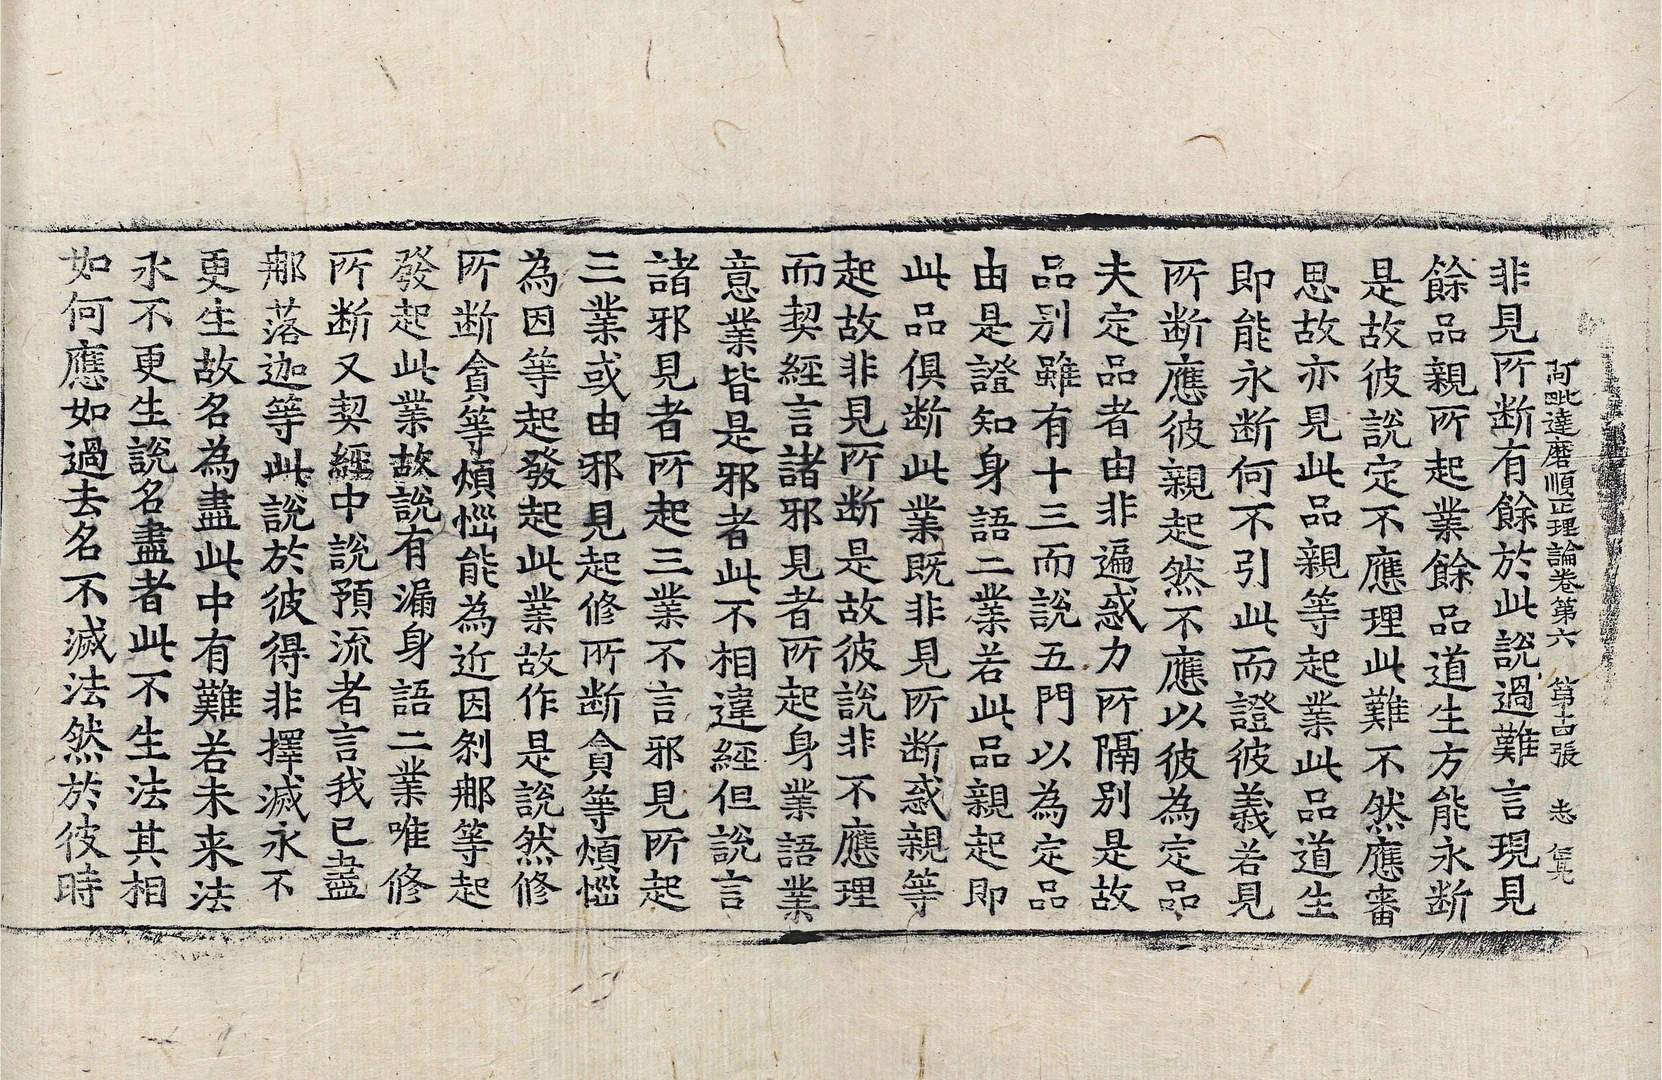 阿毗達磨順正理論卷第六 第十四張 志
非見所断有餘於此說過難言現見
餘品親所起業餘品道生方能永断
是故彼說定不應理此難不然應審
思故亦見此品親等起業此品道生
即能永断何不引此而證彼義若見
所断應彼親起然不應以彼為定品
夫定品者由非遍惑力所隔別是故
品別雖有十三而說五門以為定品
由是證知身語二業若此品親起即
此品俱断此業既非見所断惑親等
起故非見所断是故彼說非不應理
而契經言諸邪見者所起身業語業
意業皆是邪者此不相違經但說言
諸邪見者所起三業不言邪見所起
三業或由邪見起修所断貪等煩惱
為因等起發起此業故作是說然修
所断貪等煩惱能為近因剎那等起
發起此業故說有漏身語二業唯修
所断又契經中說預流者言我已盡
那落迦等此說於彼得非擇滅永不
更生故名為盡此中有難若未来法
永不更生說名盡者此不生法其相
如何應如過去名不滅法然於彼時